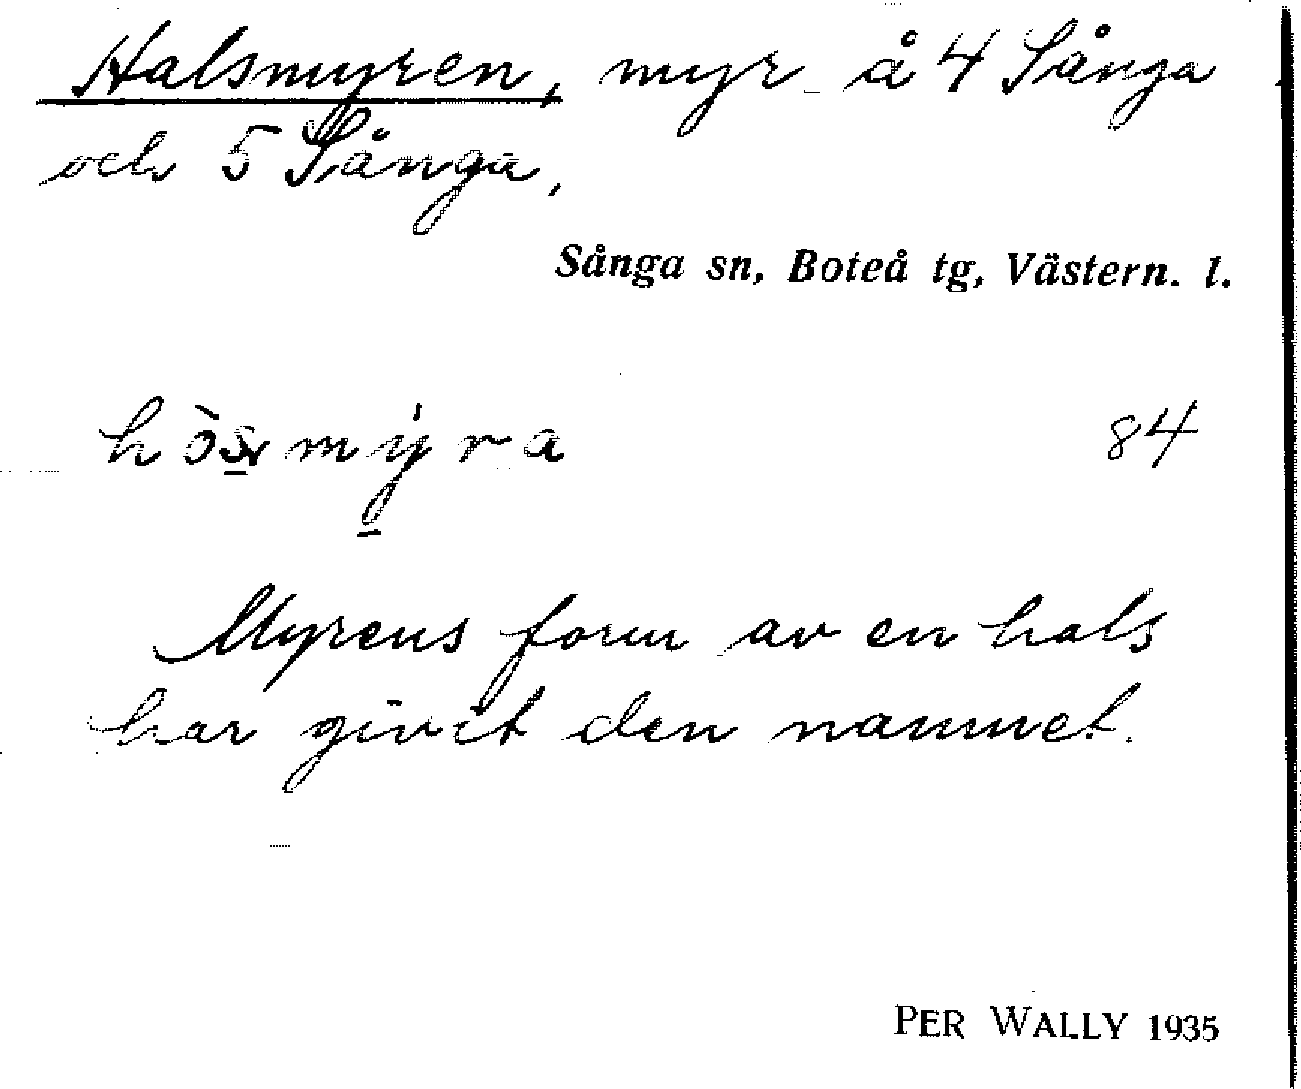 Halsmyren, myr å 4 Sånga
och 5 Sånga,
Sånga sn, Boteå tg, Västern. l.
84
Myrens form av en hals
har givit den namnet.
PER WALLY 1935